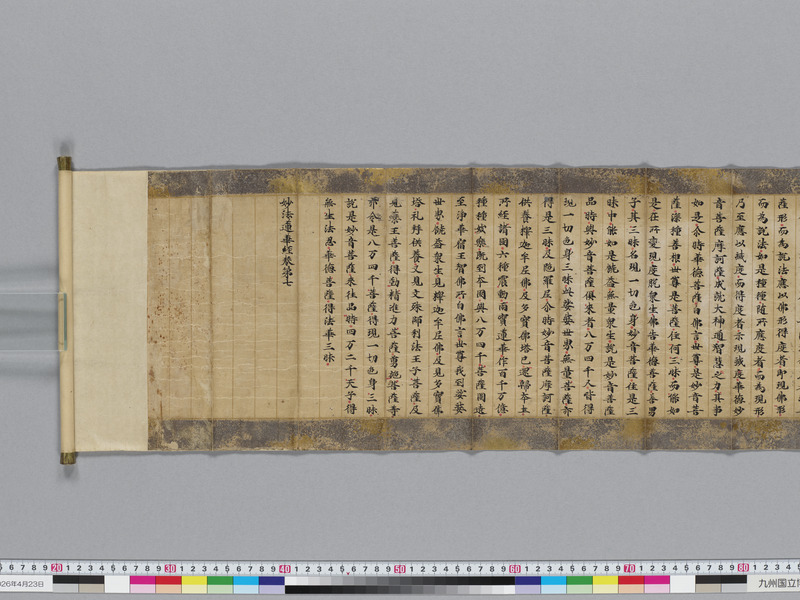 薩形而為說法應以佛形得度者即現佛形
而為說法如是種種隨所應度者而為現形
乃至應以滅度而得度者示現滅度華德妙
音菩薩摩訶薩成就大神通智慧之力其事
如是尒時華德菩薩白佛言世尊是妙音菩
薩深種善根世尊是菩薩住何三昧而能如
是在所變現度脫衆生佛告華德菩薩善男
子其三昧名現一切色身妙音菩薩住是三
昧中能如是饒益無量衆生說是妙音菩薩
品時與妙音菩薩俱來者八万四千人皆得
現一切色身三昧此娑婆世界無量菩薩亦
得是三昧及陁羅尼尒時妙音菩薩摩訶薩
供養釋迦牟尼佛及多寶佛塔已還歸本土
所經諸國六種震動雨寶蓮華作百千万億
種種伎樂既到本國與八万四千菩薩圍遶
至淨華宿王智佛所白佛言世尊我到娑婆
世界饒益衆生見釋迦牟尼佛及見多寶佛
塔礼拜供養又見文殊師利法王子菩薩及
見藥王菩薩得勤精進力菩薩勇施菩薩等
亦令是八万四千菩薩得現一切色身三昧
說是妙音菩薩来往品時四万二千天子得
無生法忍華德菩薩得法華三昧
妙法蓮華經卷第七
6 7 8 9 20 1 2 3 4 5 6 7 8 9 30 1 2 3 4 5 6 7 8 9 40 1 2 3 4 5 6 7 8 9 50 1 2 3 4 5 6 7 8 9 60 1 2 3 4 5 6 7 8 9 70 1 2 3 4 5 6 7 8 9 80 1 2 3 4
026年4月23日
九州国立博